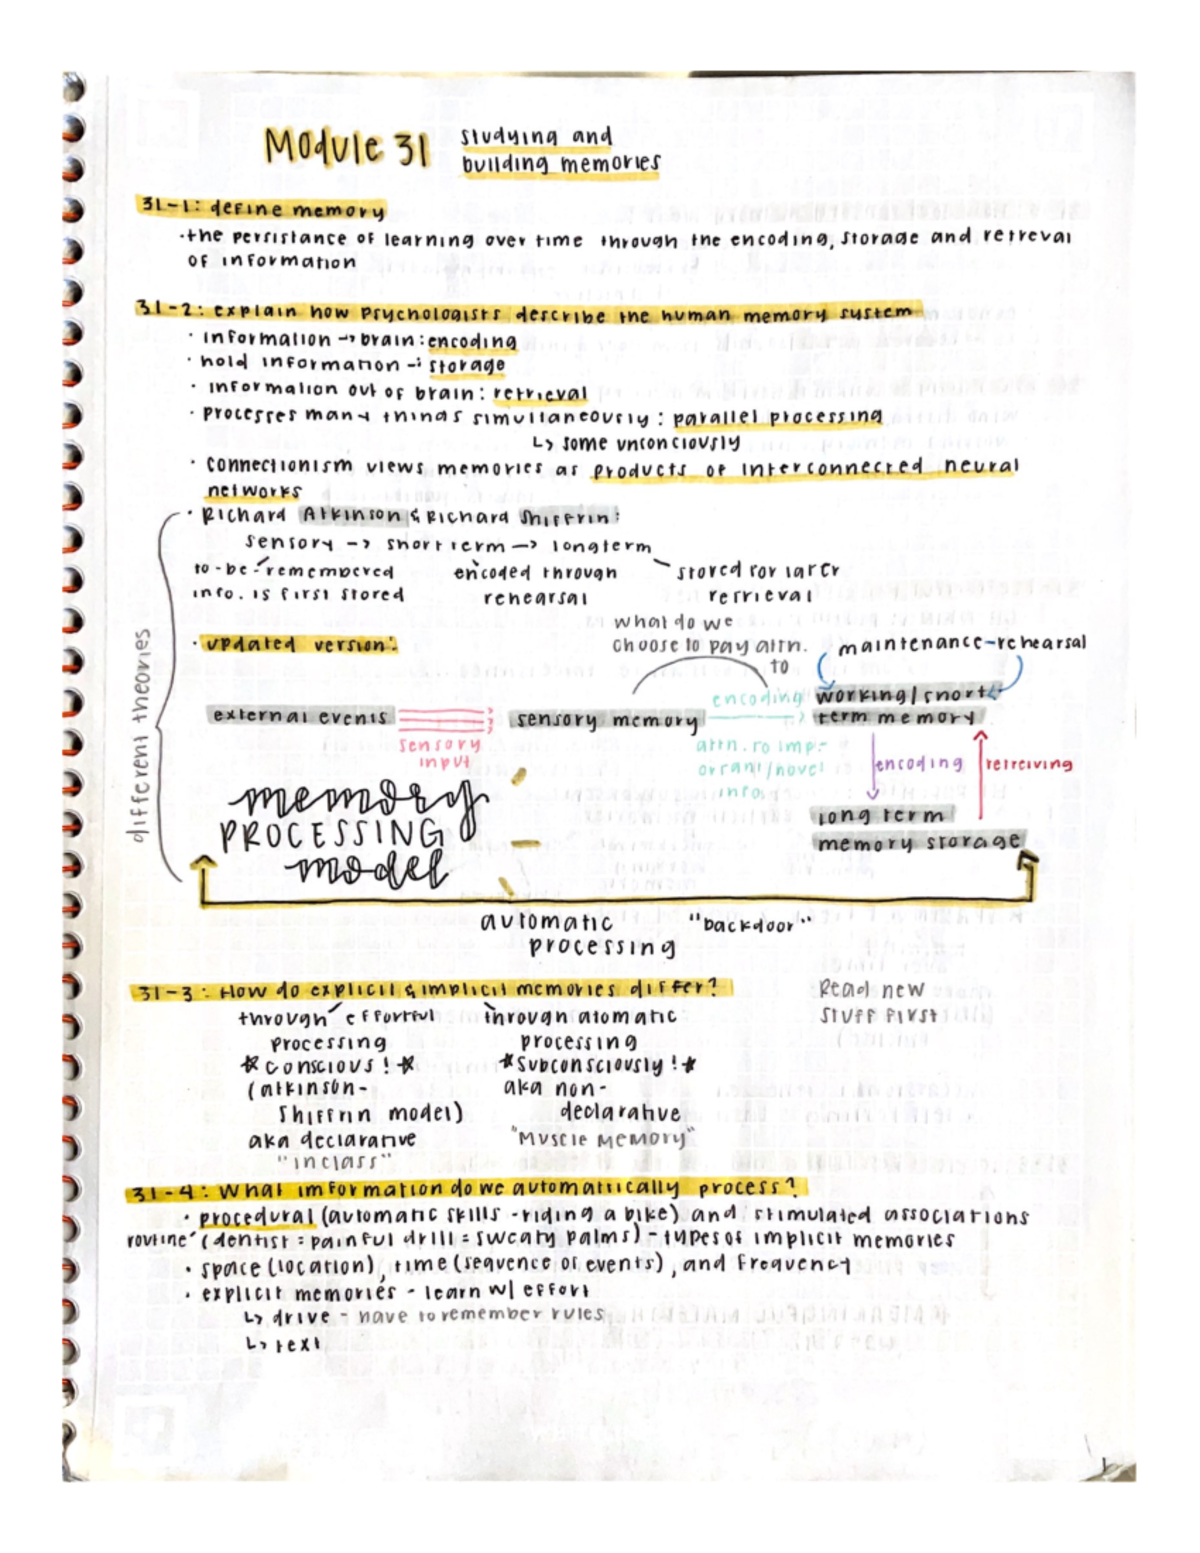 Module 31 studying and
building memories
31-1: define memory
·the persistance of learning over time through the encoding, storage and retreval
of information
31-2: explain how psychologists describe the human memory system
· information → brain: encoding
· hold information -: storage
· information out of brain: retrieval
· processes many things simultaneously: parallel processing
↳ some unconciously
· connectionism views memories as products of interconnected neural
networks
different theories
· Richard Atkinson & Richard Shiffrin:
sensory → short term → longterm
to-be-remembered
info. is first stored
encoded through
rehearsal
stored for later
retrieval
· updated version:
what do we
choose to pay attn.
to
maintenance-rehearsal
external events
sensory
input
sensory memory
encoding
attn. to imp-
orant/novel
info.
working/short
term memory
encoding
retreiving
long term
memory storage
memory
PROCESSING
model
automatic
processing
"backdoor"
31-3: How do explicit & implicit memories differ?
through effortful
processing
*conscious!*
(atkinson-
Shiffrin model)
aka declarative
"inclass"
through atomatic
processing
*Subconsciously!*
aka non-
declarative
"Muscle Memory"
Read new
stuff first
31-4: What imformation do we automattically process?
· procedural (automatic skills - riding a bike) and stimulated associations
routine (dentist = painful drill = sweaty palms) - types of implicit memories
· space (location), time (sequence of events), and frequency
· explicit memories - learn w/ effort
↳ drive - have to remember rules
↳ text